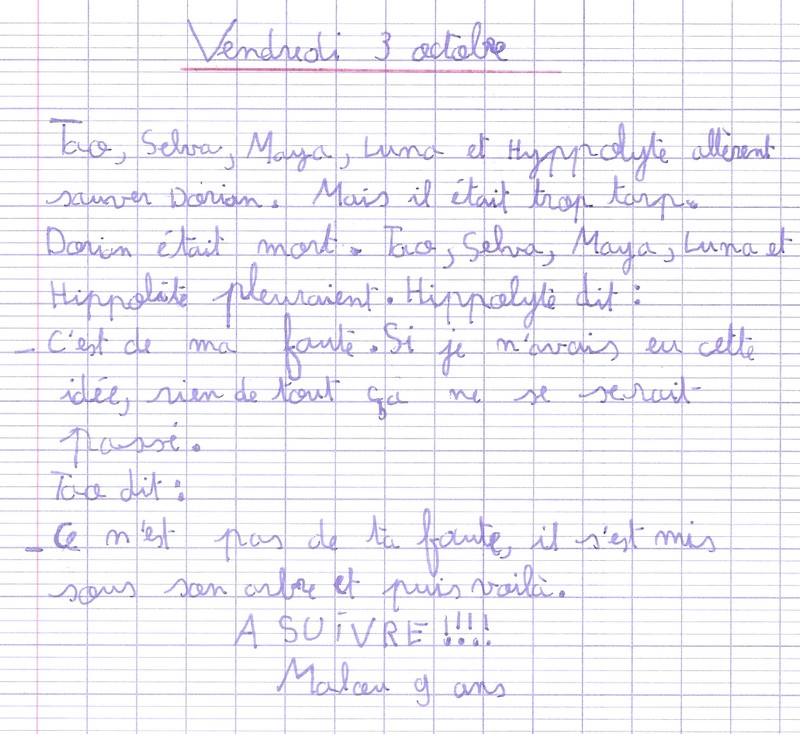 Vendredi 3 octobre
Tao, Selva, Maya, Luna et Hyppolyte allèrent
sauver Dorian. Mais il était trop tarp.
Dorian était mort. Tao, Selva, Maya, Luna et
Hippolite pleuraient. Hippolyte dit :
_ C'est de ma faute. Si je n'avais eu cette
idée, rien de tout ça ne se serait
passé.
Tao dit :
_ Ce n'est pas de ta faute, il s'est mis
sous son arbre et puis voilà.
A SUIVRE !!!!
9 ans